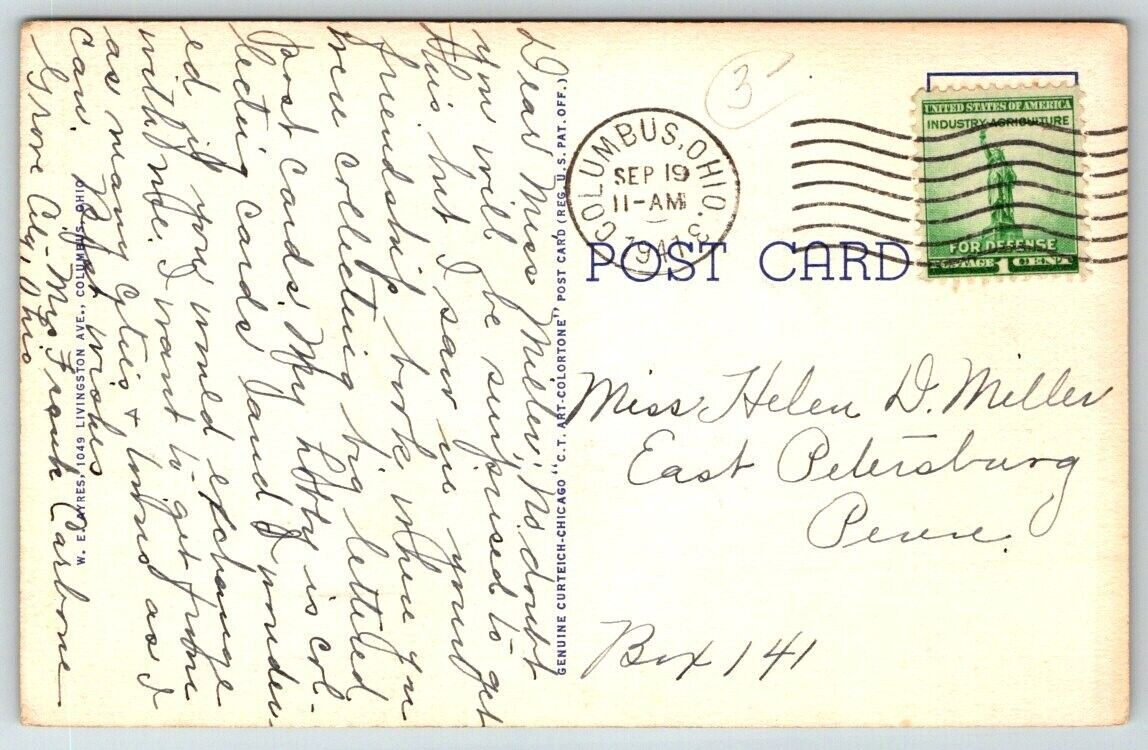 Dear Miss Miller; No doubt
you will be surprised to get
this but I saw in your
friendship book where you
were collecting big lettered
post cards. My hobby is col-
lecting cards and I wonder-
ed if you would exchange
with me. I want to get from
as many cities & towns as I
can. Best wishes
- Mrs. Frank Carbone
Grove City, Ohio
W. E. AYRES, 1049 LIVINGSTON AVE., COLUMBUS, OHIO
GENUINE CURTEICH-CHICAGO "C.T. ART-COLORTONE" POST CARD (REG. U.S. PAT. OFF.)
3
COLUMBUS, OHIO. 3
SEP 19
11-AM
194
UNITED STATES OF AMERICA
INDUSTRY AGRICULTURE
FOR DEFENSE
POSTAGE 1 CENT
POST CARD
Miss Helen D. Miller
East Petersburg
Penn.
Box 141